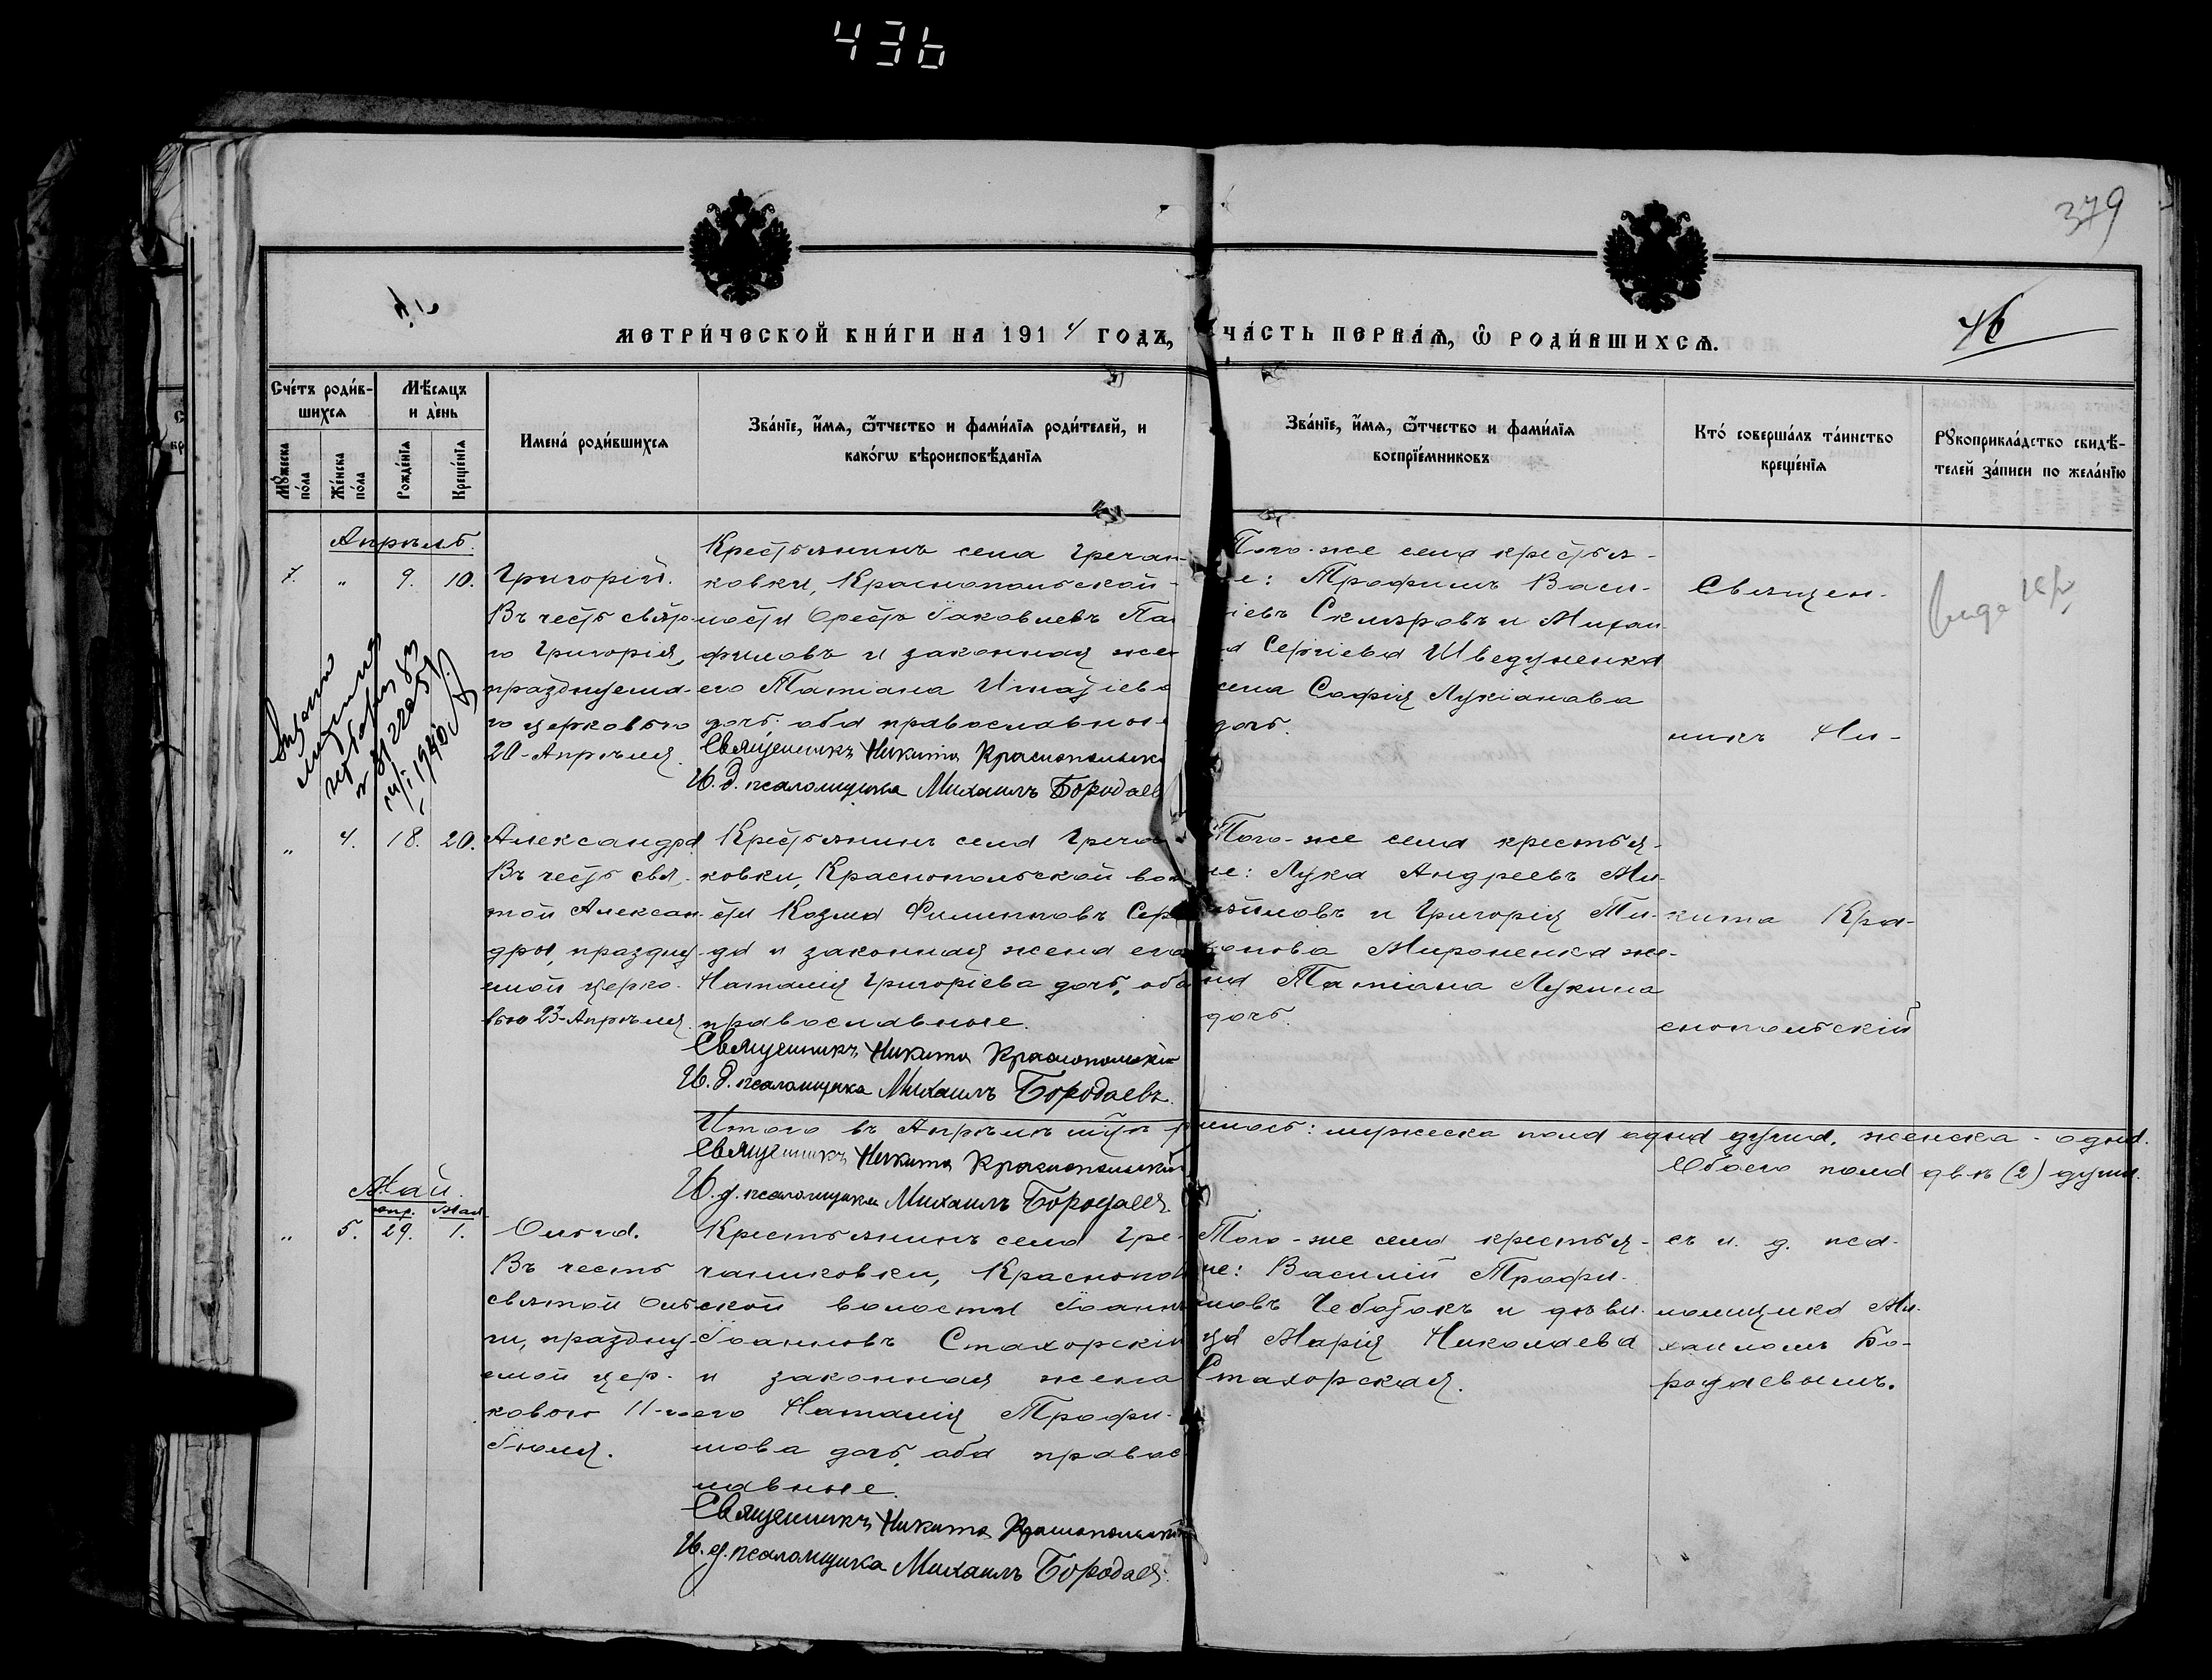 436
379
46
МЕТРИ́ЧЕСКОЙ КНИ́ГИ НА 1914 ГОДЪ, ЧА́СТЬ ПЕРВАѦ, Ѡ҆ РОДИ́ВШИХСѦ.
Сче́тъ роди́в-
шихсѧ
Мꙋ́жеска по́ла
Же́нска по́ла
Мѣ́сѧцъ
и де́нь
Рожде́нїѧ
Креще́нїѧ
Имена́ роди́вшихсѧ
Зва́нїе, и҆́мѧ, ѻ҆́тчество и фами́лїѧ роди́телей, и
како́гѡ вѣроисповѣ́данїѧ
Зва́нїе, и҆́мѧ, ѻ҆́тчество и фами́лїѧ
воспрїе́мниковъ
Кто́ соверша́лъ та́инство
креще́нїѧ
Рꙋкоприкла́дство свидѣ́-
телей за́писи по жела́нїю
Апрѣль.
7. " 9. 10.
Григорій.
Въ честь свято-
го Григорія,
празднуема-
го церковью
20-Апрѣля.
Крестьянинъ села Гречан-
ковки, Краснопольской
волости Орестъ Іаковлевъ
филовъ и законная жена
его Татіана Игнатіева
дочь. оба православные.
Священникъ Никита Краснопольскій
И. д. псаломщика Михаилъ Бородаевъ
Того-же села крестья-
не: Трофимъ Васи-
ліевъ Скляровъ и Михаи-
ла Сергіева Шведуненка
жена Софія Лукіанова
дочь.
Священ-
никъ Ни-
кита Кра-
снопольскій
съ и. д. пса-
ломщика Ми-
хаиломъ Бо-
родаевымъ.
" 4. 18. 20.
Александра
Въ честь свя-
той Алексан-
дры, праздну-
емой церко-
вью 23-Апрѣля.
Крестьянинъ села Гречан-
ковки, Краснопольской воло-
сти Козма Филипповъ
да и законная жена его
Наталія Григоріева дочь, оба
православные.
Священникъ Никита Краснопольскій
И. д. псаломщика Михаилъ Бородаевъ.
Того-же села крестья-
не: Лука Андреевъ Ми-
хайловъ и Григорія Ти-
хонова Мироненка же-
на Татіана Лукина
дочь.
Итого въ Апрѣлѣ родилось: мужеска пола одна душа, женска - одна.
Обоего пола двѣ (2) души.
Священникъ Никита Краснопольскій
И. д. псаломщика Михаилъ Бородаевъ.
Май.
апр. Мая
" 5. 29. 1.
Ольга.
Въ честь
святой Оль-
ги, праздну-
емой цер-
ковью 11-го
Іюля.
Крестьянинъ села Гре-
чанковки, Краснополь-
ской волости Іоаннъ
Іоанновъ Стахорскій
и законная жена
его Наталія Трофи-
мова дочь, оба правос-
лавные.
Священникъ Никита Краснопольскій
И. д. псаломщика Михаилъ Бородаевъ.
Того-же села крестья-
не: Василій Трофи-
мовъ Чеботокъ и дѣви-
ца Марія Николаева
Стахорская.